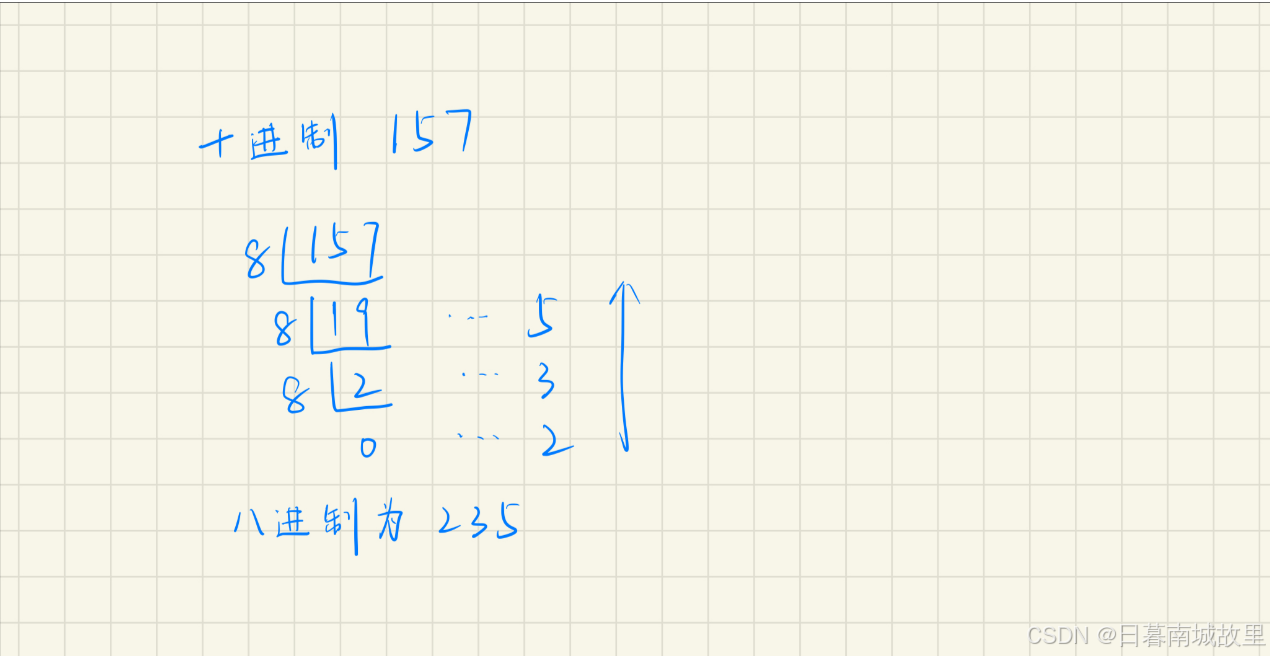 十进制 157
8 157
8 19 ... 5
8 2 ... 3
0 ... 2
八进制为 235
CSDN @日暮南城故里